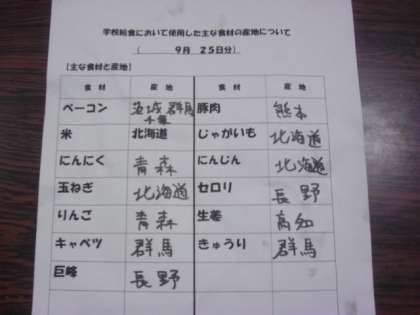 学校給食において使用した主な食材の産地について
( 9月 25日分)
[主な食材と産地]
食材 産地 食材 産地
ベーコン 茨城 群馬 千葉 豚肉 熊本
米 北海道 じゃがいも 北海道
にんにく 青森 にんじん 北海道
玉ねぎ 北海道 セロリ 長野
りんご 青森 生姜 高知
キャベツ 群馬 きゅうり 群馬
巨峰 長野